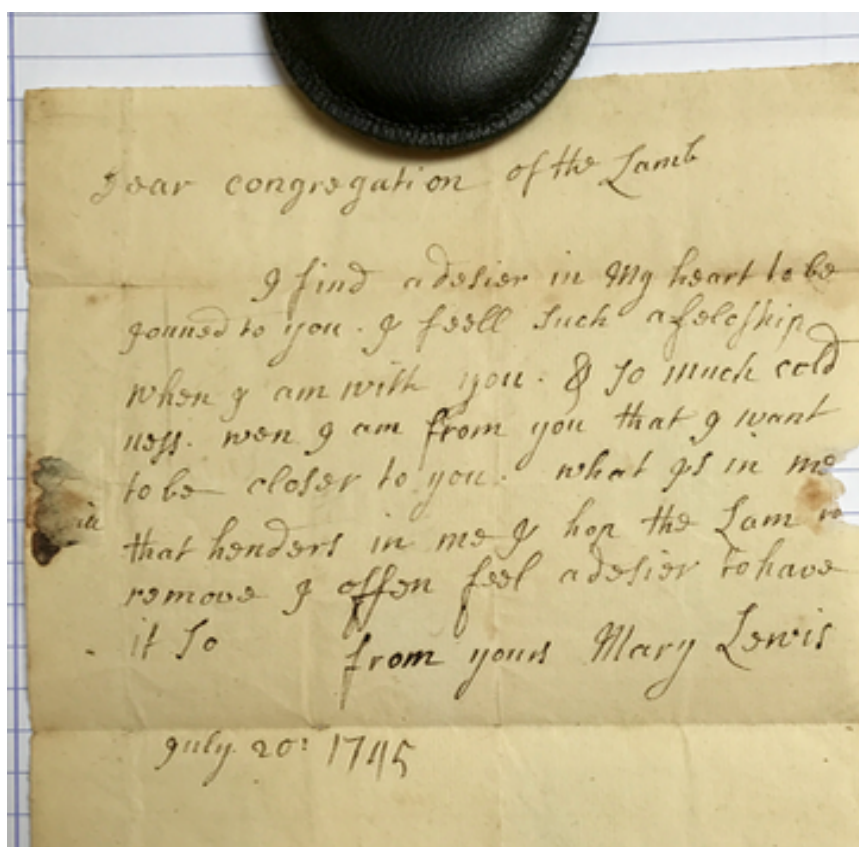 Dear congregation of the Lamb
I find a desier in My heart to be
Jouned to you. I feell such a felcship
when I am with you. & so much cold
ness. wen I am from you that I want
to be closer to you. what is in me
that henders in me I hop the Lam
remove I offen feel a desier to have
it so
from yours Mary Lewis
July 20: 1745